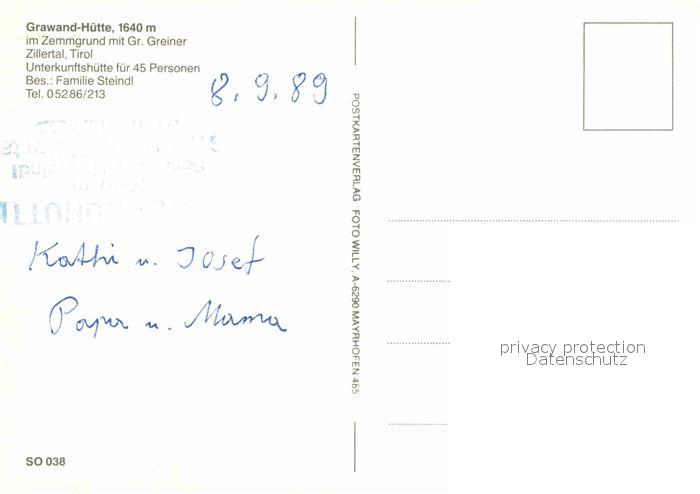 Grawand-Hütte, 1640 m
im Zemmgrund mit Gr. Greiner
Zillertal, Tirol
Unterkunftshütte für 45 Personen
Bes.: Familie Steindl
Tel. 05286/213
8. 9. 89
Kathi u. Josef
Papa u. Mama
SO 038
POSTKARTENVERLAG FOTO WILLY, A-6290 MAYRHOFEN 465
privacy protection
Datenschutz